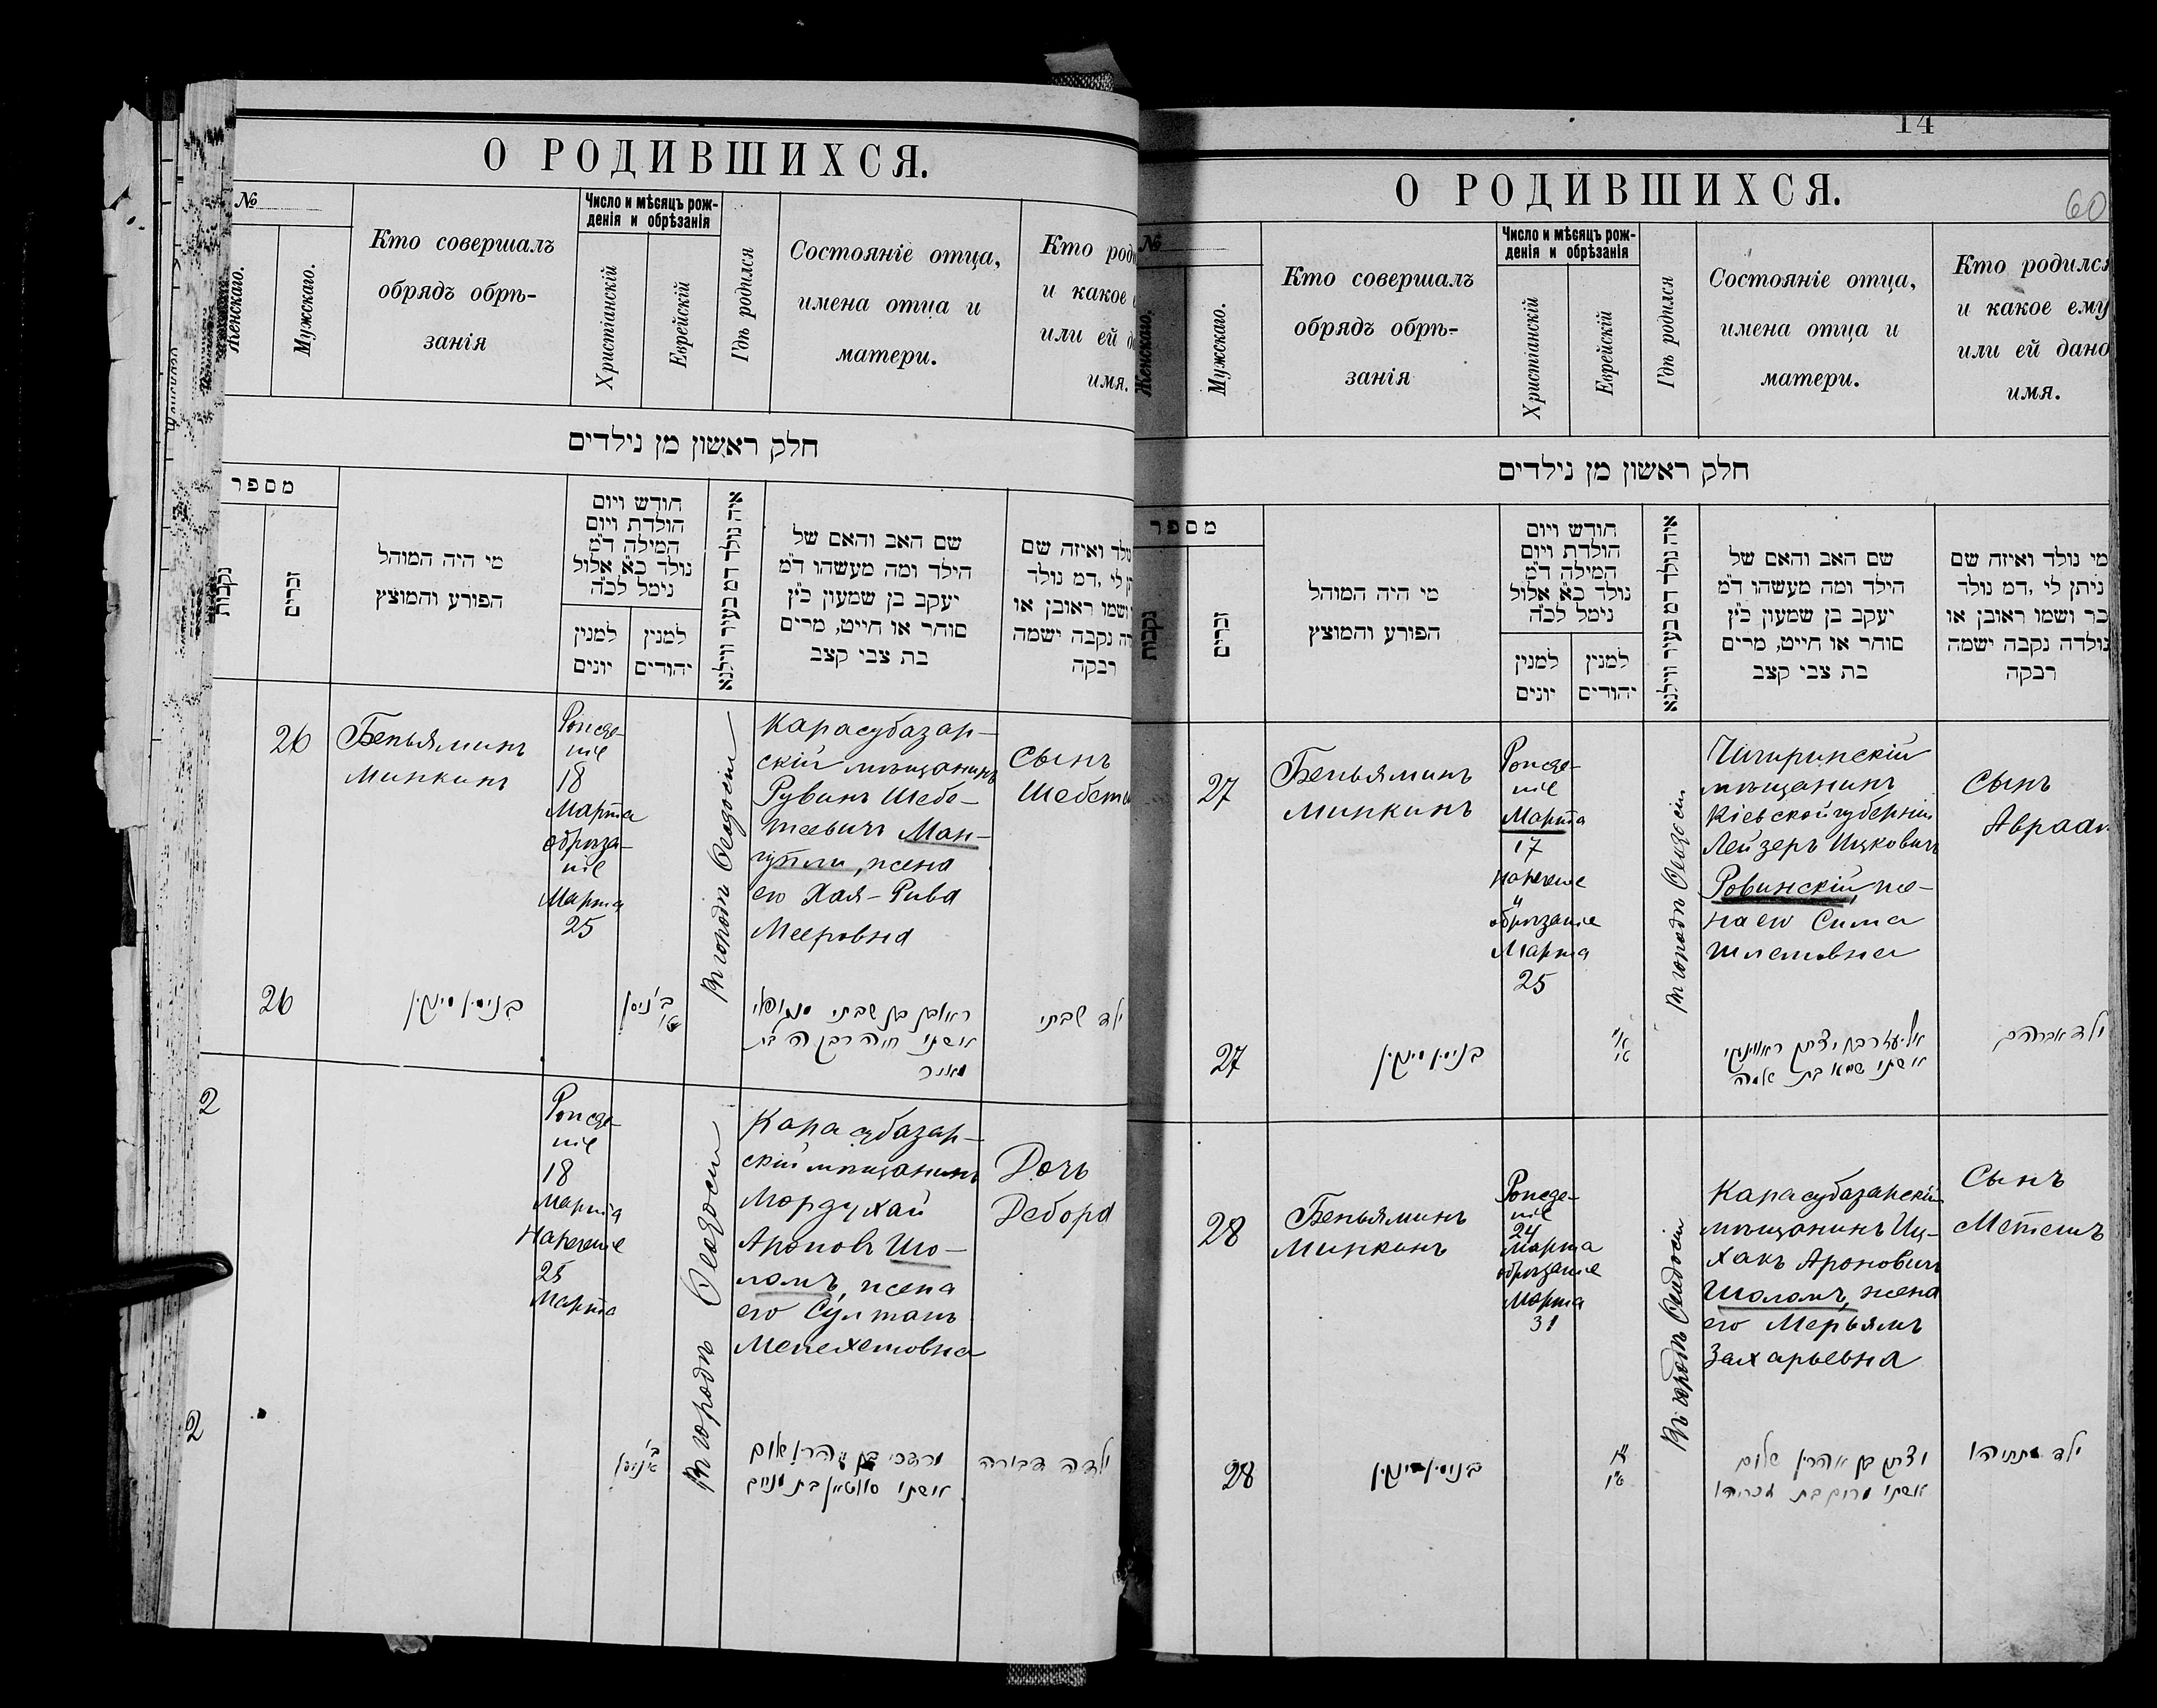 О РОДИВШИХСЯ.
№
Женскаго.
Мужскаго.
Кто совершалъ
обрядъ обрѣ-
занія
Число и мѣсяцъ рож-
денія и обрѣзанія
Христіанскій
Еврейскій
Гдѣ родился
Состояніе отца,
имена отца и
матери.
Кто
и какое
или ей
имя.
חלק ראשון מן נילדים
מספר
נקבות
זכרים
מי היה המוהל
הפורע והמוצץ
חודש ויום
הולדת ויום
המילה ד"מ
נולד כ"א אלול
נימל לכ"ה
למנין
יונים
למנין
יהודים
איה נולד דמ בעיר ווילנא
שם האב והאם של
הילד ומה מעשהו ד"מ
יעקב בן שמעון כ"ץ
סוחר או חייט, מרים
בת צבי קצב
ואיזה שם
לי ,דמ נולד
ושמו ראובן או
נקבה ישמה
רבקה
26
Беньяминъ
Минкинъ
Рожде-
ніе
18
Марта
обрѣза-
ніе
Марта
25
Въ городѣ Ѳеодосіи
Карасубазар-
скій мѣщанинъ
Рувинъ Шебе-
теевичъ Ман-
гупли, жена
его Хая-Рива
Мееровна
Сынъ
26
בנימין מינקין
ב' ניסן
ראובן בן שבתי
אשתו חיה רבקה בת
מאיר
ילד שבתי
2
Рожде-
ніе
18
Марта
Нареченіе
25
Марта
Въ городѣ Ѳеодосіи
Карасубазар-
скій мѣщанинъ
Мордухай
Ароновъ Шо-
ломъ, жена
его Султанъ
Менехемовна
Дочь
Дебора
2
מרדכי בן אהרין שלום
ילדה דבורה
14
60
О РОДИВШИХСЯ.
№
Женскаго.
Мужскаго.
Кто совершалъ
обрядъ обрѣ-
занія
Число и мѣсяцъ рож-
денія и обрѣзанія
Христіанскій
Еврейскій
Гдѣ родился
Состояніе отца,
имена отца и
матери.
Кто родился
и какое ему
или ей дано
имя.
חלק ראשון מן נילדים
מספר
נקבות
זכרים
מי היה המוהל
הפורע והמוצץ
חודש ויום
הולדת ויום
המילה ד"מ
נולד כ"א אלול
נימל לכ"ה
למנין
יונים
למנין
יהודים
איה נולד דמ בעיר ווילנא
שם האב והאם של
הילד ומה מעשהו ד"מ
יעקב בן שמעון כ"ץ
סוחר או חייט, מרים
בת צבי קצב
מי נולד ואיזה שם
ניתן לי ,דמ נולד
בר ושמו ראובן או
נולדה נקבה ישמה
רבקה
27
Беньяминъ
Минкинъ
Рожде-
ніе
Марта
17
Нареченіе
и
обрѣзаніе
Марта
25
Въ городѣ Ѳеодосіи
Чигиринскій
мѣщанинъ
Кіевской губерніи
Лейзеръ Ицковичъ
Ровинскій, же-
на его Сима
Шлемовна
Сынъ
27
בנימין מינקין
אליעזר בן יצחק ראווינסקי
אשתו סימא בת שלמה
ילד אברהם
28
Беньяминъ
Минкинъ
Рожде-
ніе
24
Марта
обрѣзаніе
Марта
31
Въ городѣ Ѳеодосіи
Карасубазарскій
мѣщанинъ Иц-
хакъ Ароновичъ
Шоломъ, жена
его Мерьямъ
Захарьевна
Сынъ
28
בנימין מינקין
יצחק בן אהרין שלום
אשתו מרים בת זכריהו
ילד מתתיהו